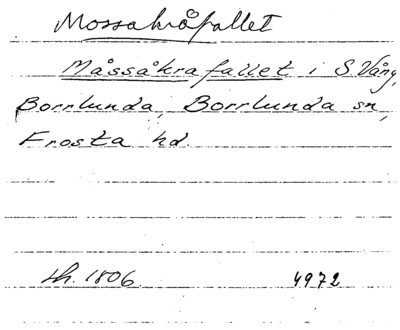 Mossakråfallet
Måssåkrafallet i S. Vång,
Borrlunda, Borrlunda sn,
Frosta hd.
Lh. 1806. 4972